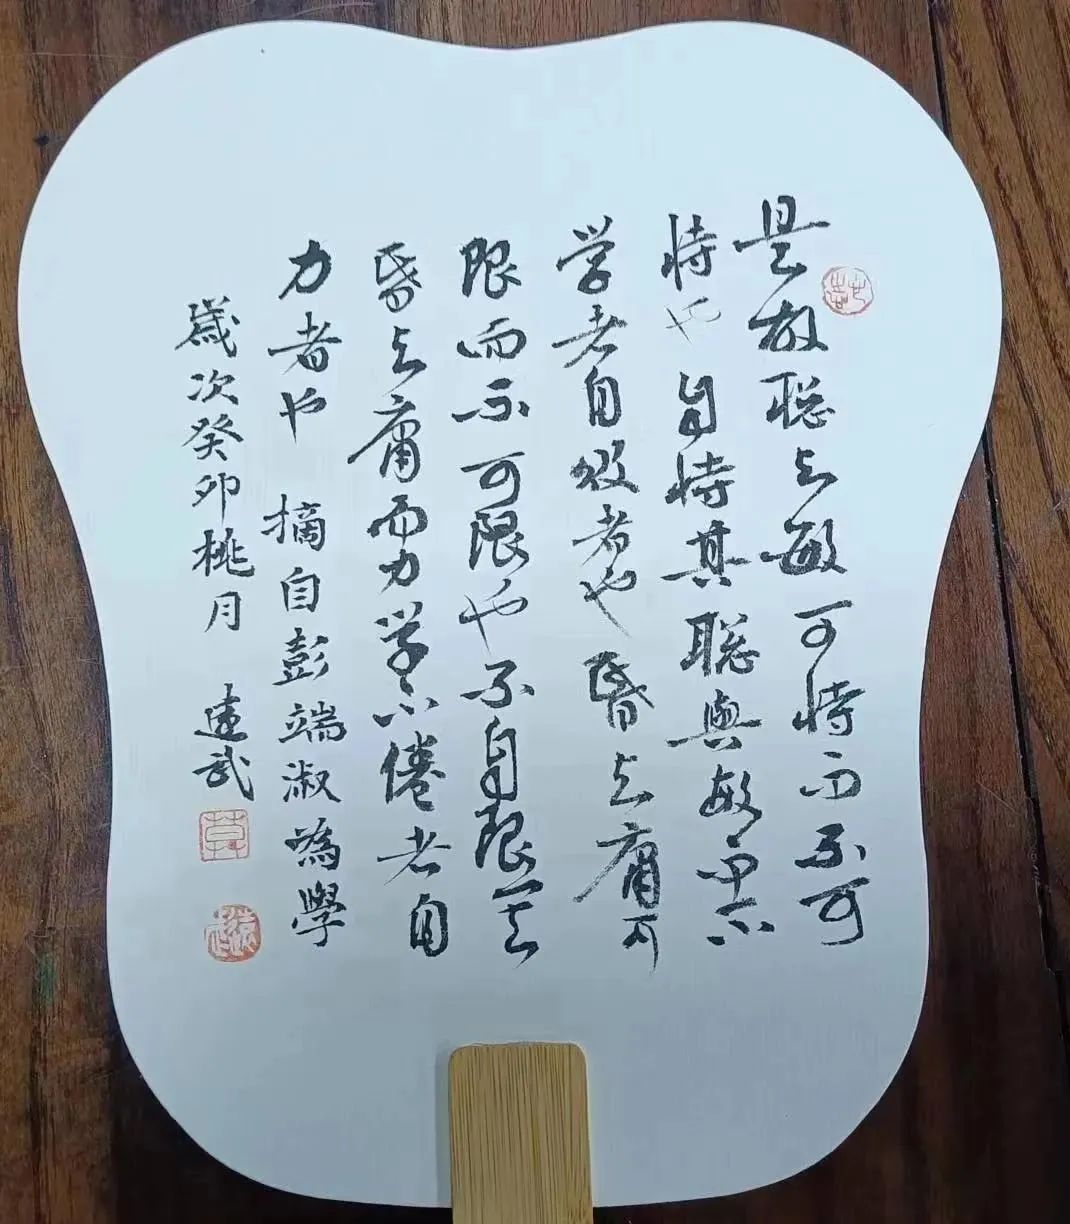 是故聪与敏可恃而不可
恃也自恃其聪與敏而不
学者自败者也昏与庸可
限而不可限也不自限其
昏与庸而力学不倦者自
力者也 摘自彭端淑為學
歲次癸卯桃月 建武